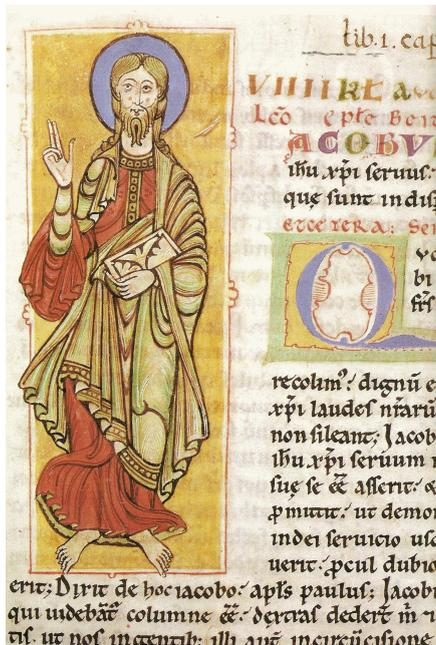 lib. 1. cap
VIIII kł a
Lc̄o ep̄le Beati
IACOBVS
ih̄u xp̄i seruus.
quę sunt in disp
etcetera: Ser
Q
bi
fr̄s
recolim᷒? dignū e
xp̄i laudes nr̄arū
non sileant; Jacob
ih̄u xp̄i seruum
suę se ēē asserit:
ꝓmittit: ut demo
in dei seruicio usq
uerit: ꝓcul dubio
erit; Dixit de hoc iacobo: apl̄s paulus; Jacob
qui uidebāt᷒ columne ēē: dextras dedert̄ m̄
tis. ut nos in gentib; illi aut̄ in circūcisione